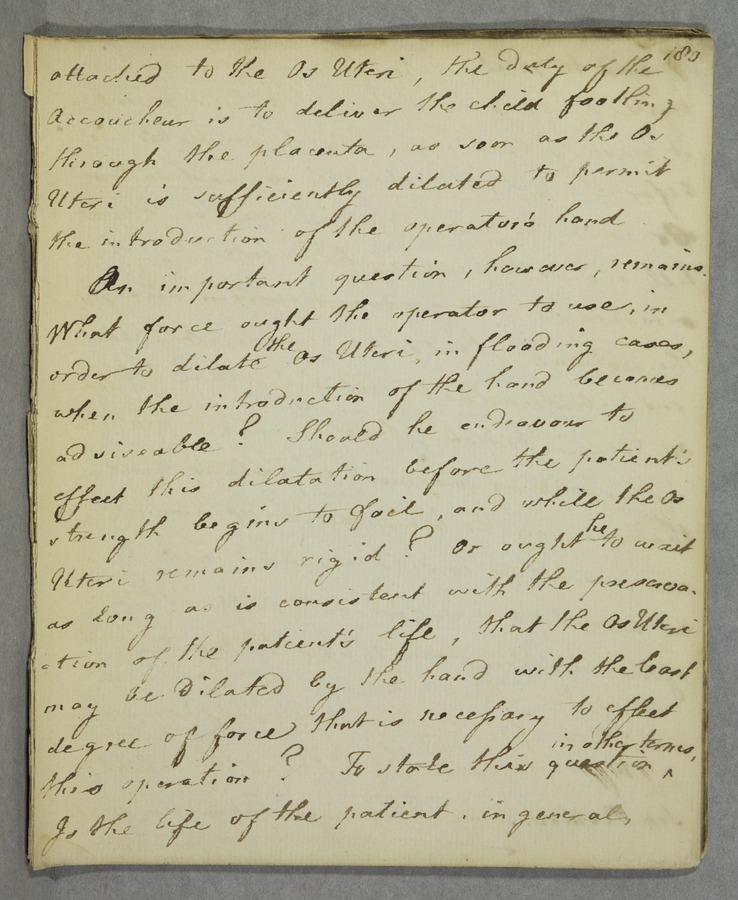 183
attached to the Os Uteri, the duty of the
Accoucheur is to deliver the child footling
through the placenta, as soon as the Os
Uteri is sufficiently dilated to permit
the introduction of the operator's hand
An important question, however, remains.
What force ought the operator to use, in
order to dilate the Os Uteri, in flooding cases,
when the introduction of the hand becomes
adviseable? Should he endeavour to
effect this dilatation before the patient's
strength begins to fail, and while the Os
Uteri remains rigid? Or ought he to wait
as long as is consistent with the preserva-
-tion of the patient's life, that the Os Uteri
may be dilated by the hand with the least
degree of force that is necessary to effect
this operation? To state this question in other terms,
Is the life of the patient, in general,